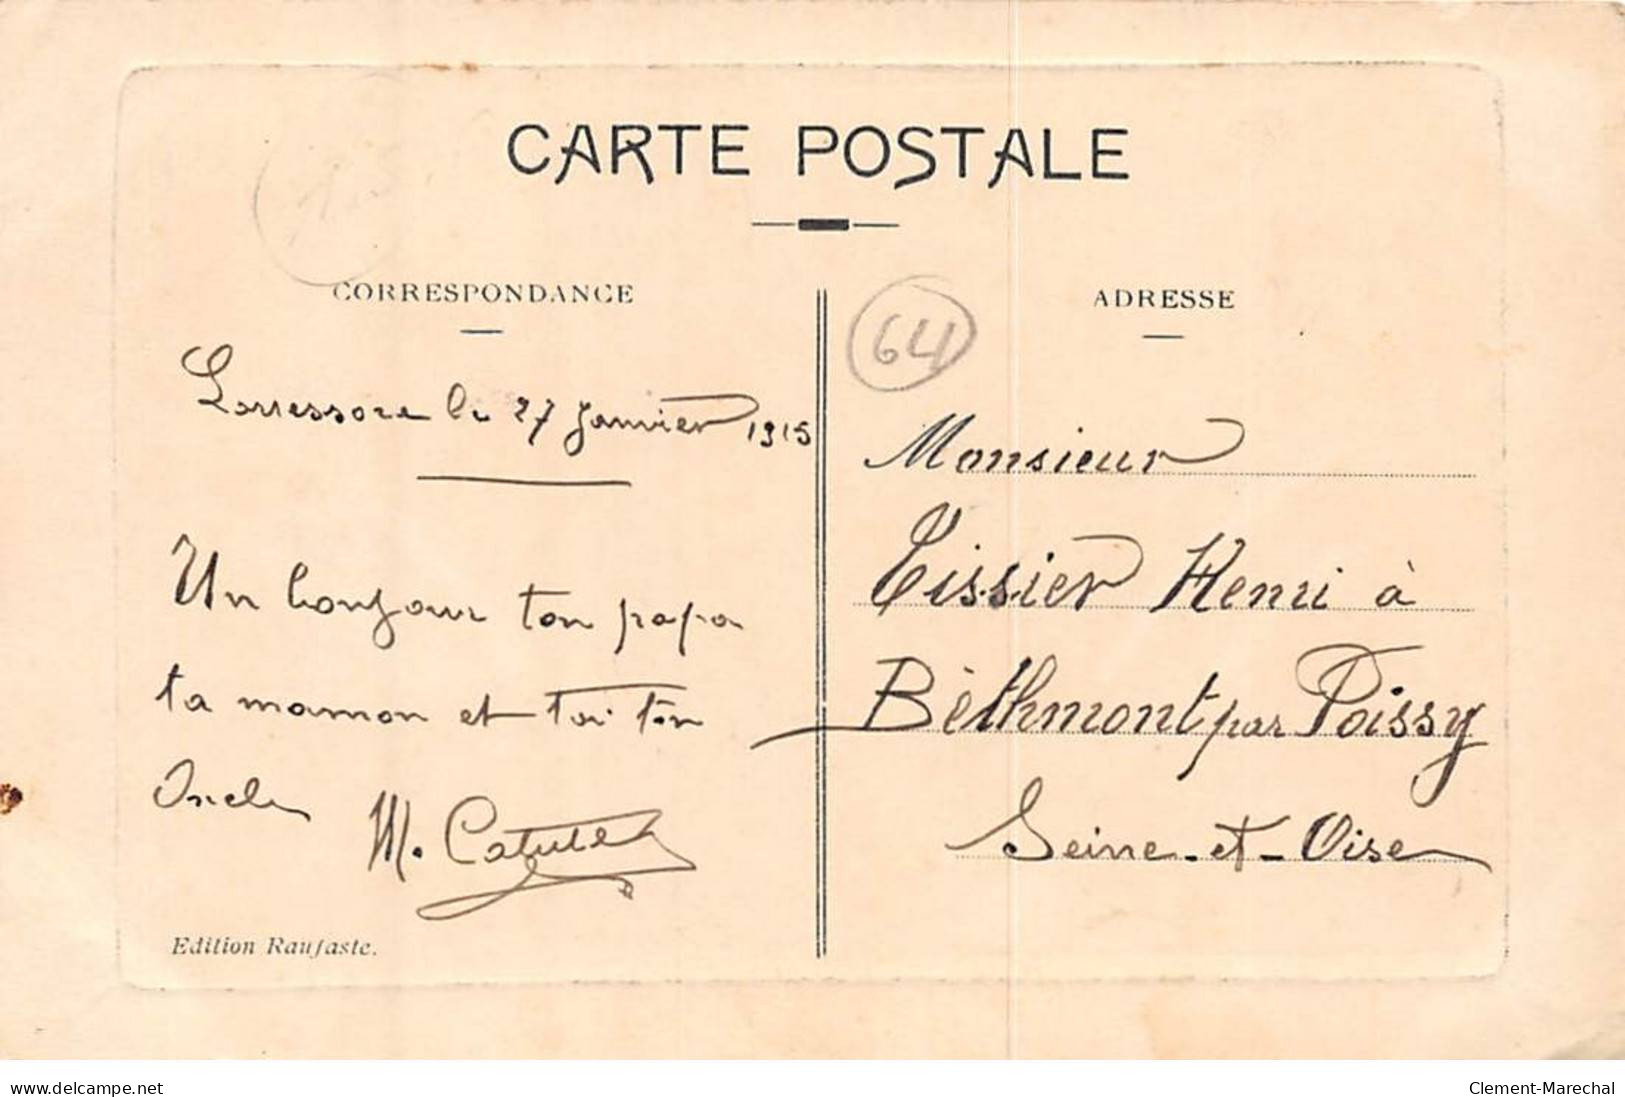 CARTE POSTALE
CORRESPONDANCE
Larressore le 27 Janvier 1915
Un bonjour ton papa
ta maman et toi ton
Oncle
M.
Edition Raufaste.
64
ADRESSE
Monsieur
Tissier Henri à
Bèthmont par Poissy
Seine-et-Oise
www.delcampe.net
Clement-Marechal